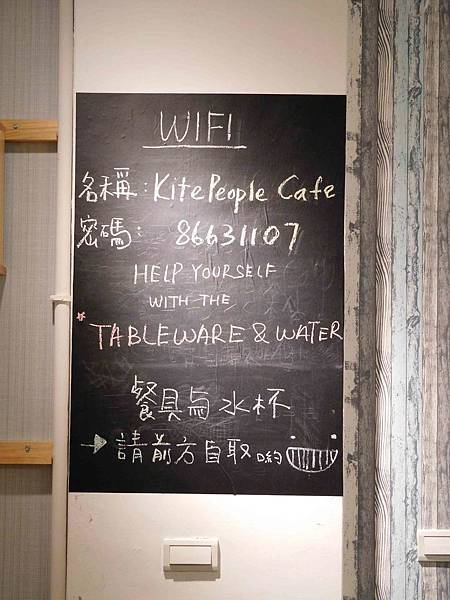 WIFI
名稱：KitePeople Cafe
密碼： 86631107
HELP YOURSELF
WITH THE
*TABLEWARE & WATER
餐具与水杯
→請前方自取喲